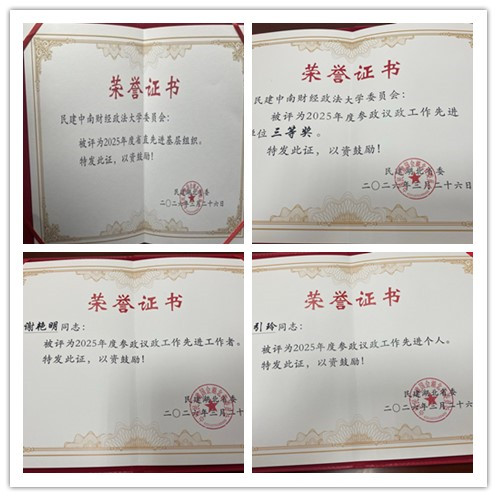 荣誉证书
民建中南财经政法大学委员会：
被评为2025年度省直先进基层组织。
特发此证，以资鼓励！
民建湖北省委
二〇二六年二月二十六日
荣誉证书
民建中南财经政法大学委员会：
被评为2025年度参政议政工作先进
单位三等奖。
特发此证，以资鼓励！
民建湖北省委
二〇二六年二月二十六
荣誉证书
谢艳明同志：
被评为2025年度参政议政工作先进工作者。
特发此证，以资鼓励！
民建湖北省委
二〇二六年二月二十六
荣誉证书
引玲同志：
被评为2025年度参政议政工作先进个人。
特发此证，以资鼓励！
民建湖北省委
二〇二六年二月二十六